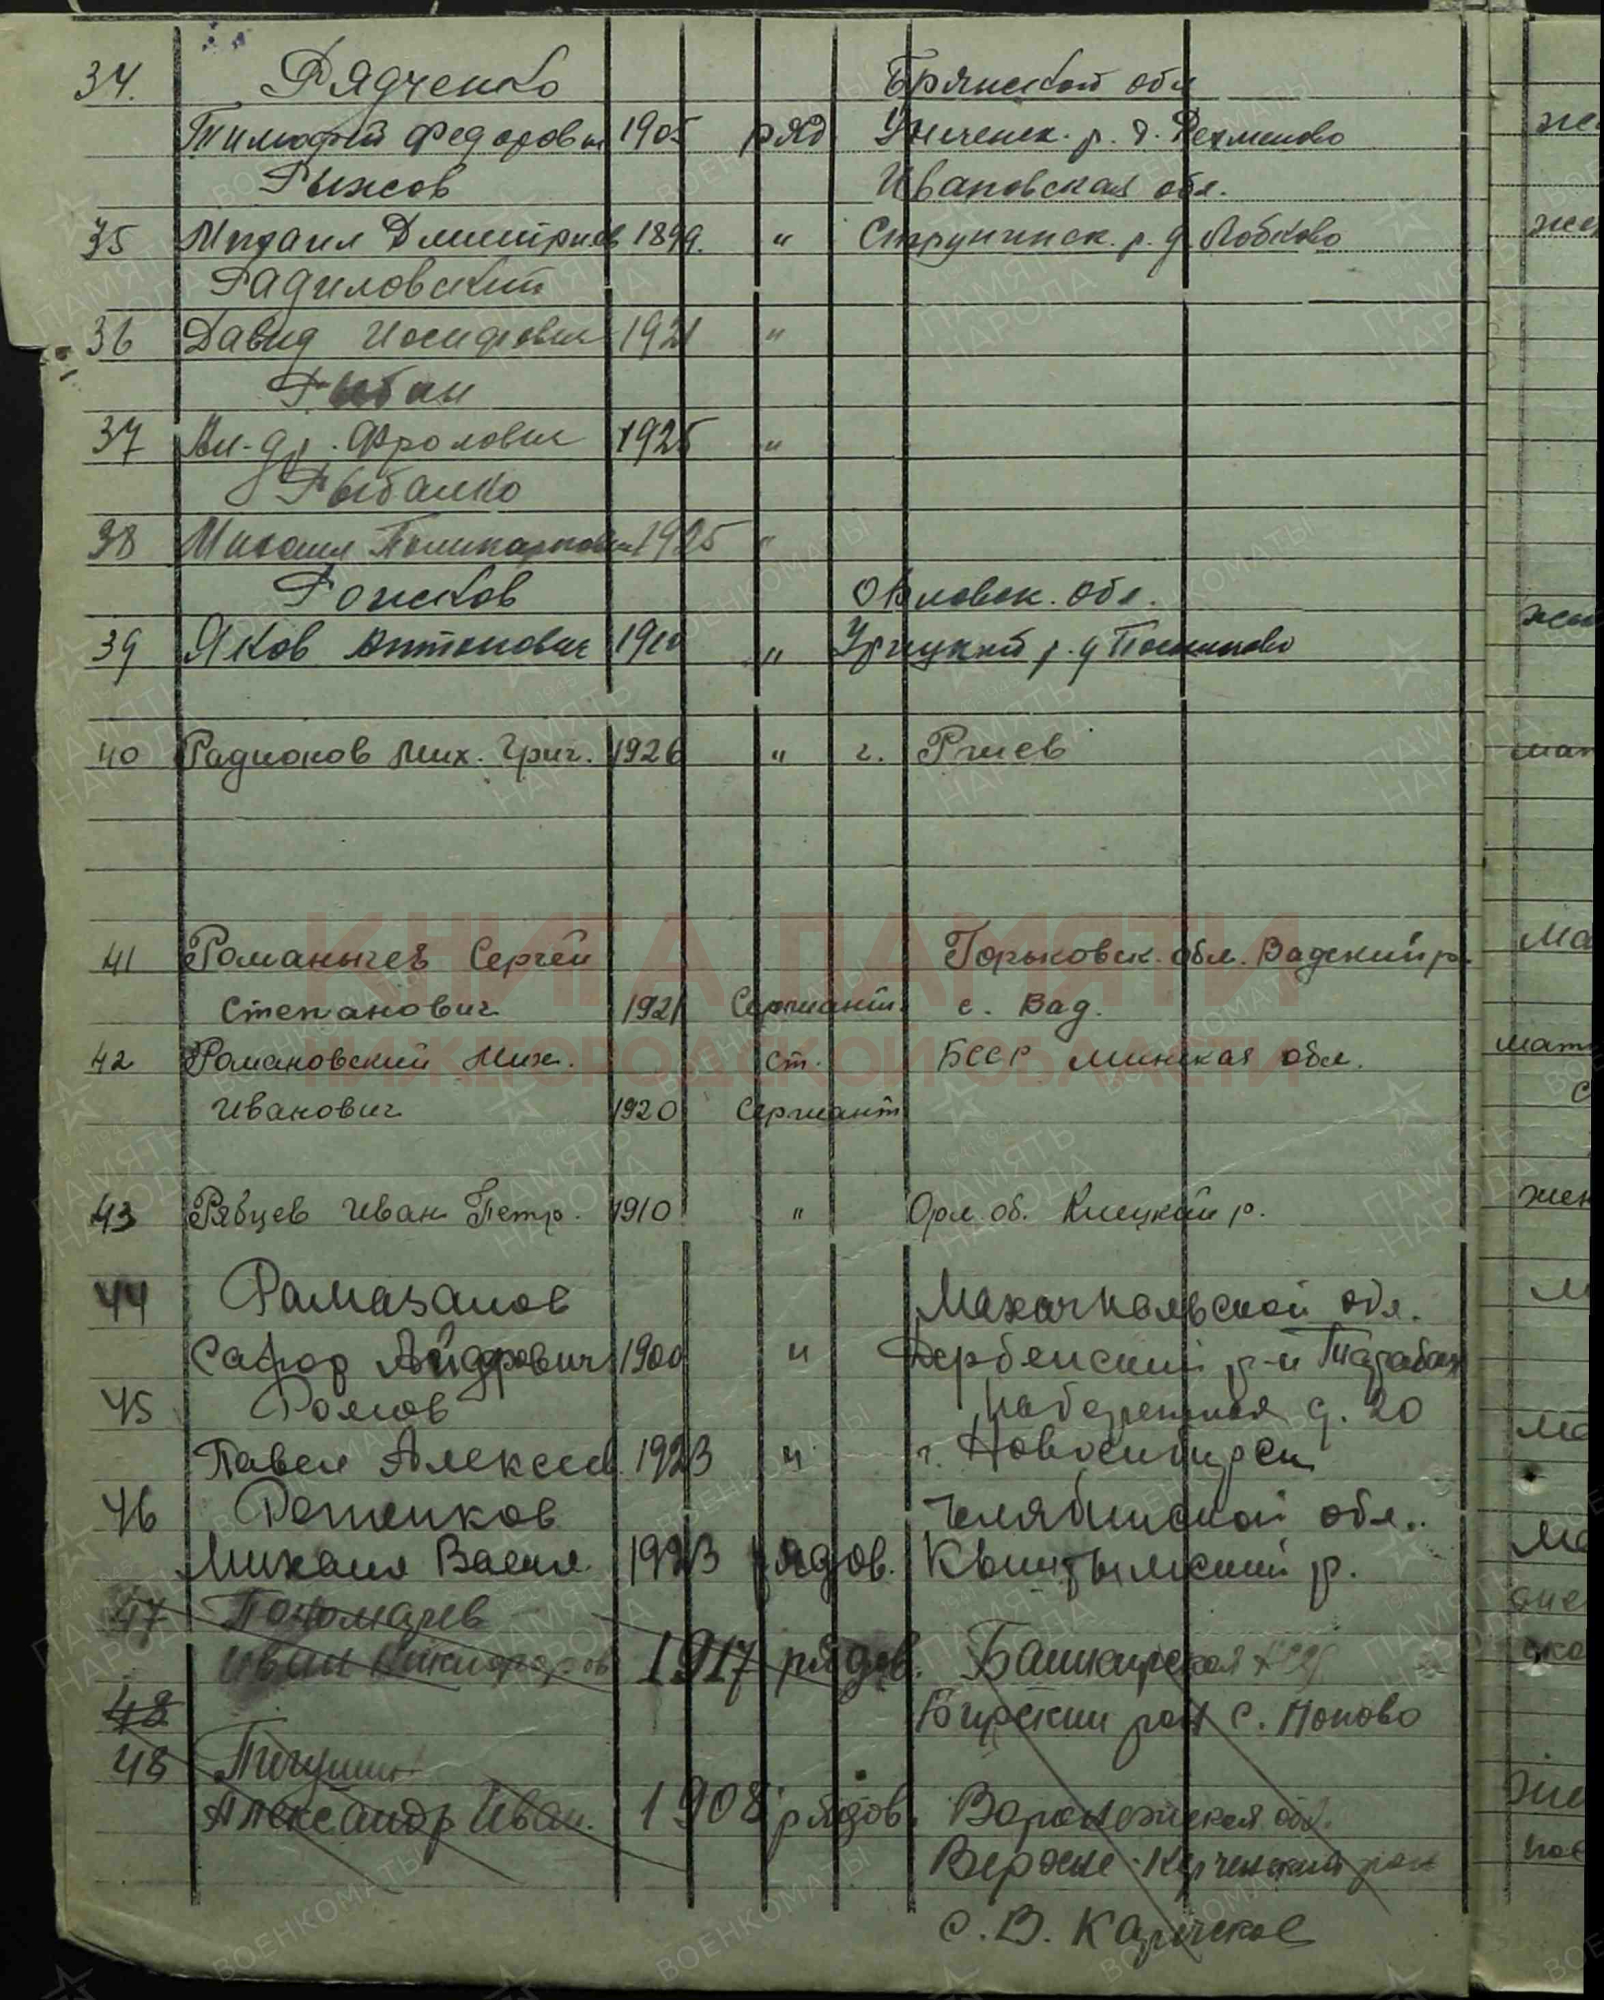 34. Рядченко Брянской обл
Тимофей Федорович 1905 ряд. Унеченск. р. д. Рехменово
Рыжов Ивановская обл.
35 Михаил Дмитриев 1899. " Струнинск. р. д. Лобково
Радиловский
36 Давид Иосифович 1921 "
Рыбан
37 Ал-др. Фролович 1925 "
Рыбалко
38 Михаил Поликарпович 1925 "
Рожков Орловск. обл.
39 Яков Антонович 1910 " Урицкий р. д
40 Радионов Мих. Григ. 1926 " г. Ржев
41 Романычев Сергей Горьковск. обл. Вадский р.
Степанович 1921 Сержант с. Вад.
42 Романовский Мих. ст. БССР Минская обл.
Иванович 1920 Сержант
43 Рябцев Иван Петр. 1910 " Орл. об. Клецкий р.
44 Рамазанов Махачкалвской обл.
Сафор 1900 " Дербенский р-н
45 Ромов Набережная д. 20
Павел Алексеев. 1923 " г. Новосибирск
46 Челябинской обл..
Михаил Васил. 1923 рядов. Кыштымский р.
47 Пономарев
Иван Никифоров 1917 рядов. Башкирская АССР
48 Бирский рон с. Попово
48 Пигушин
Александр Иван. 1908 рядов. Воронежская обл.
Верхне- рон
с. В.
КНИГА ПАМЯТИ
НИЖЕГОРОДСКОЙ ОБЛАСТИ
ПАМЯТЬ НАРОДА
1941-1945
ВОЕНКОМАТЫ